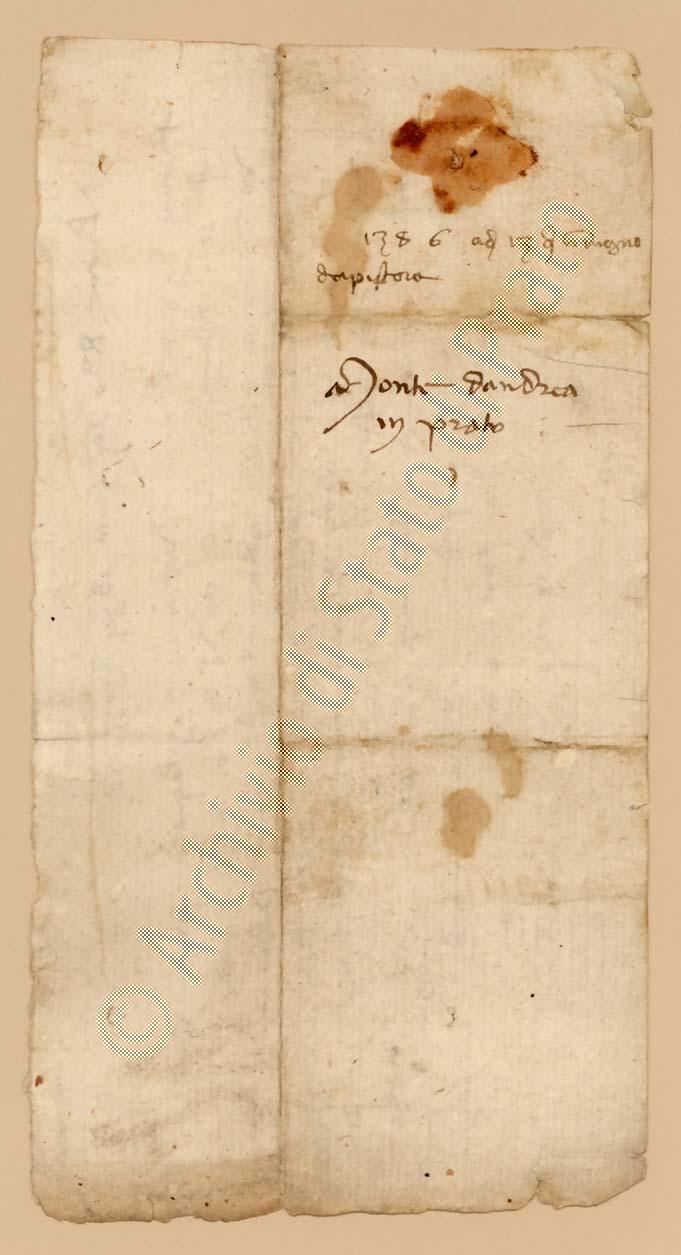 1386 adj 13 dj Giugno
dapistoia
a Monte dandrea
in prato
© Archivio di Stato di Prato